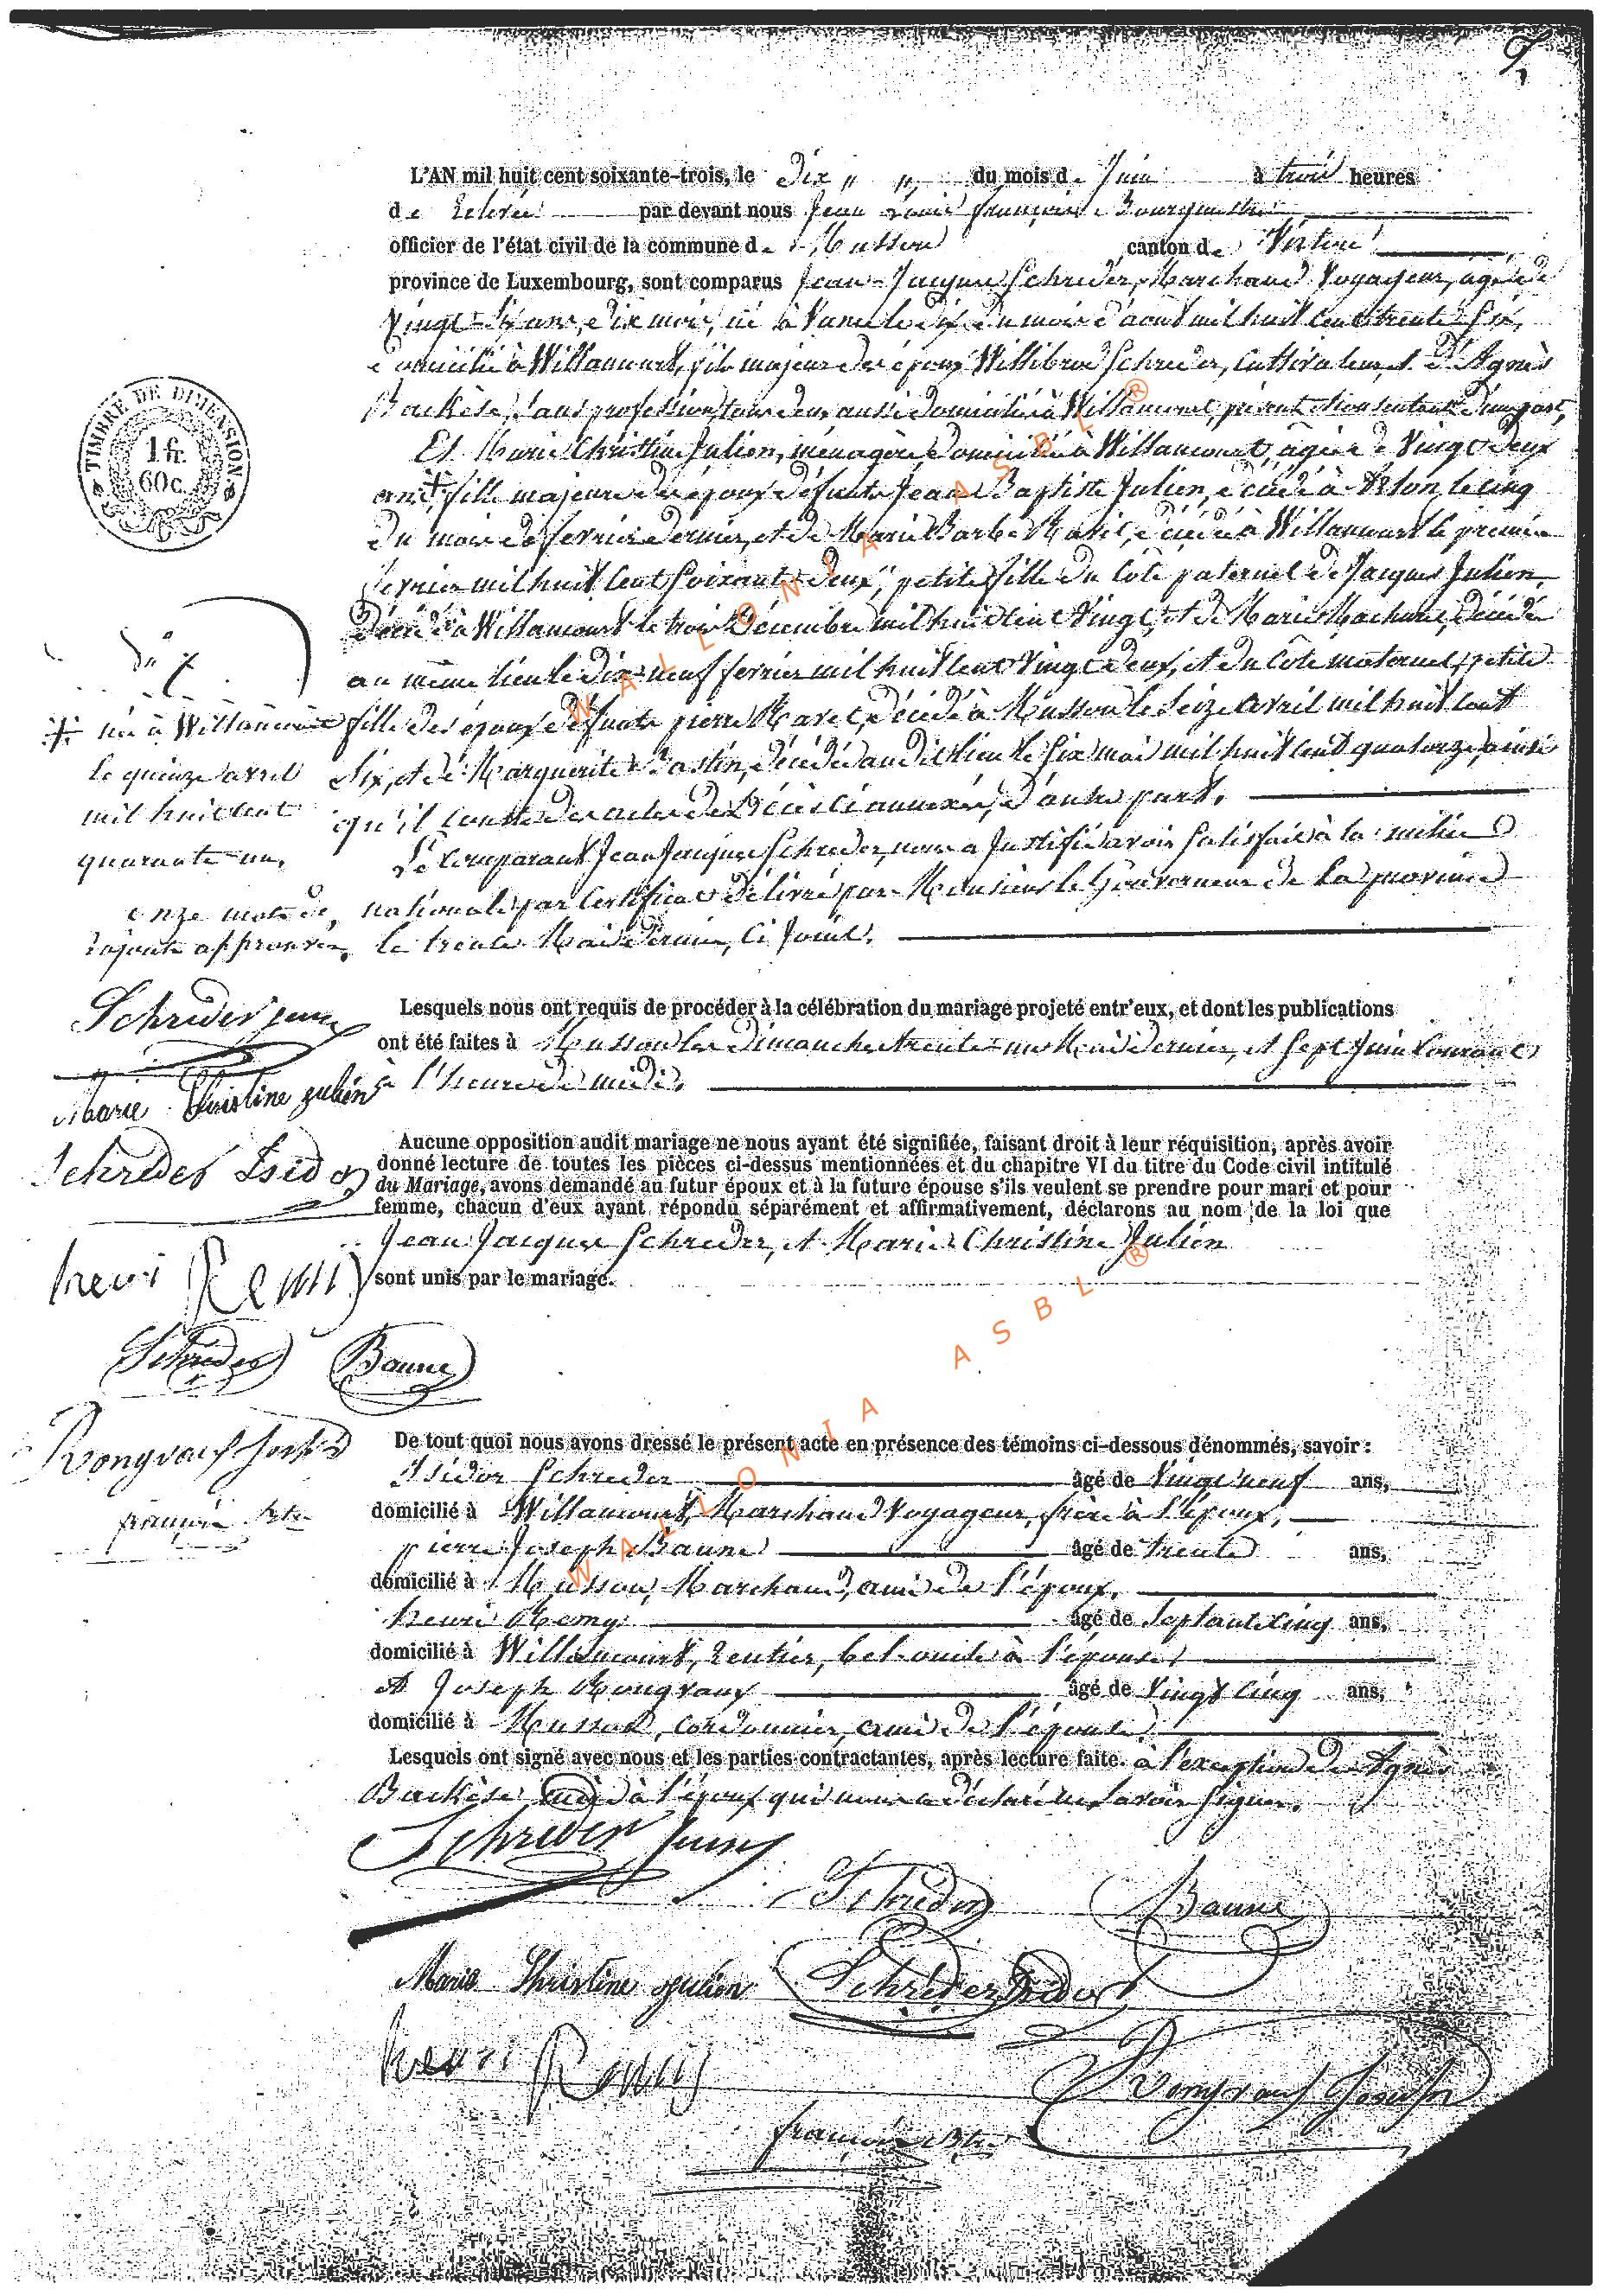 L'AN mil huit cent soixante-trois, le dix du mois de Juin à trois heures
de relevée par devant nous Jean Louis françois Bourgmestre
officier de l'état civil de la commune de Musson canton de Virton
province de Luxembourg, sont comparus Jean-Jacques Schreder, Marchand Voyageur, âgé de
Vingt-Six ans, dix mois, né à le dix du mois d'août mil huit cent trente Six,
domicilié à Willancourt, fils majeur des époux Willibrod Schreder, Cultivateur, et d'Agnès
Backès, Sans profession, tous deux aussi domiciliés à Willancourt, présents et consentants d'une part,
Et Marie Christine Julien, ménagère domiciliée à Willancourt, âgée de Vingt deux
ans, fille majeure des époux défunts Jean Baptiste Julien, décédé à Arlon, le cinq
du mois de fevrier dernier, et de Marie Barbe décédée à Willancourt le premier
fevrier mil huit Cent Soixante deux, petite fille du Côté paternel de Jacques Julien,
Décédé à Willancourt le trois Décembre mil huit Cent Vingt, et de Marie Machurot, décédée
au même lieu le dix-neuf fevrier mil huit Cent Vingt deux, et du Côté maternel, petite
✻ née à Willancourt fille des époux défunts pierre décédé à Musson le Seize avril mil huit Cent
le quinze avril Six, et de Marguerite Bastin, décédée audit lieu le Six mai mil huit Cent quatorze, ainsi
mil huit cent qu'il conste des actes de Décès ci annexés, d'autre part.
quarante un, Le Comparant Jean Jacques Schreder, nous a Justifié avoir Satisfait à la milice
onze mots de nationale par Certificat délivré par Monsieur le Gouverneur de la province
rajoute approuvés, le trente Mai dernier, Ci Joint.
TIMBRE DE DIMENSION
1 fr.
60 c.
Schreder jeune
Marie Christine Julien
Schreder Isidor
henri Remy
Schreder Baune
Rongvaux Joseph
françois
Lesquels nous ont requis de procéder à la célébration du mariage projeté entr'eux, et dont les publications
ont été faites à Musson les Dimanches trente-un Mai dernier, et Sept Juin Courant
à l'heure de midi.
Aucune opposition audit mariage ne nous ayant été signifiée, faisant droit à leur réquisition, après avoir
donné lecture de toutes les pièces ci-dessus mentionnées et du chapitre VI du titre du Code civil intitulé
du Mariage, avons demandé au futur époux et à la future épouse s'ils veulent se prendre pour mari et pour
femme, chacun d'eux ayant répondu séparément et affirmativement, déclarons au nom de la loi que
Jean Jacques Schreder, et Marie Christine Julien
sont unis par le mariage.
De tout quoi nous avons dressé le présent acte en présence des témoins ci-dessous dénommés, savoir :
Isidor Schreder âgé de Vingt neuf ans,
domicilié à Willancourt, Marchand Voyageur, frère à l'époux,
pierre Joseph Baune âgé de trente ans,
domicilié à Musson, Marchand, ami de l'époux,
henri Remy âgé de Septante Cinq ans,
domicilié à Willancourt, rentier, bel-oncle à l'épouse,
et Joseph Rongvaux âgé de Vingt Cinq ans,
domicilié à Musson, cordonnier, ami de l'épouse
Lesquels ont signé avec nous et les parties contractantes, après lecture faite. à l'exception de Agnès
Backès mère à l'époux qui nous a déclaré ne Savoir Signer.
Schreder jeune
Schreder Baune
Marie Christine Julien Schreder Isidor
henri Remy Rongvaux Joseph
françois
WALLONIA ASBL ®
WALLONIA ASBL ®